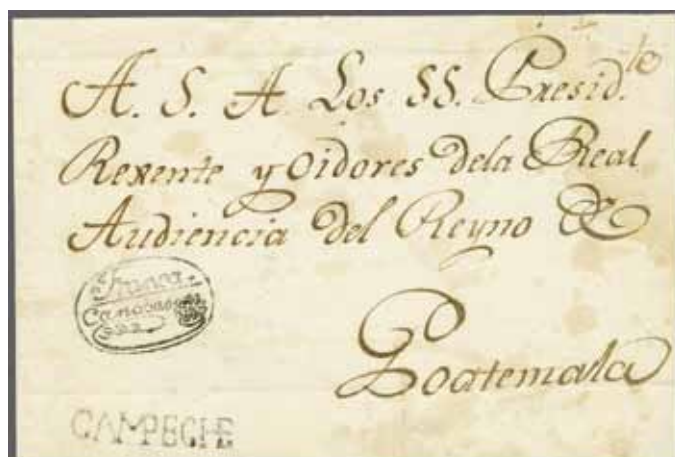 A. S. A. Los SS. Presid.te
Rexente y Oidores dela Real
Audiencia del Reyno &
Franca
Goatemala
CAMPECHE